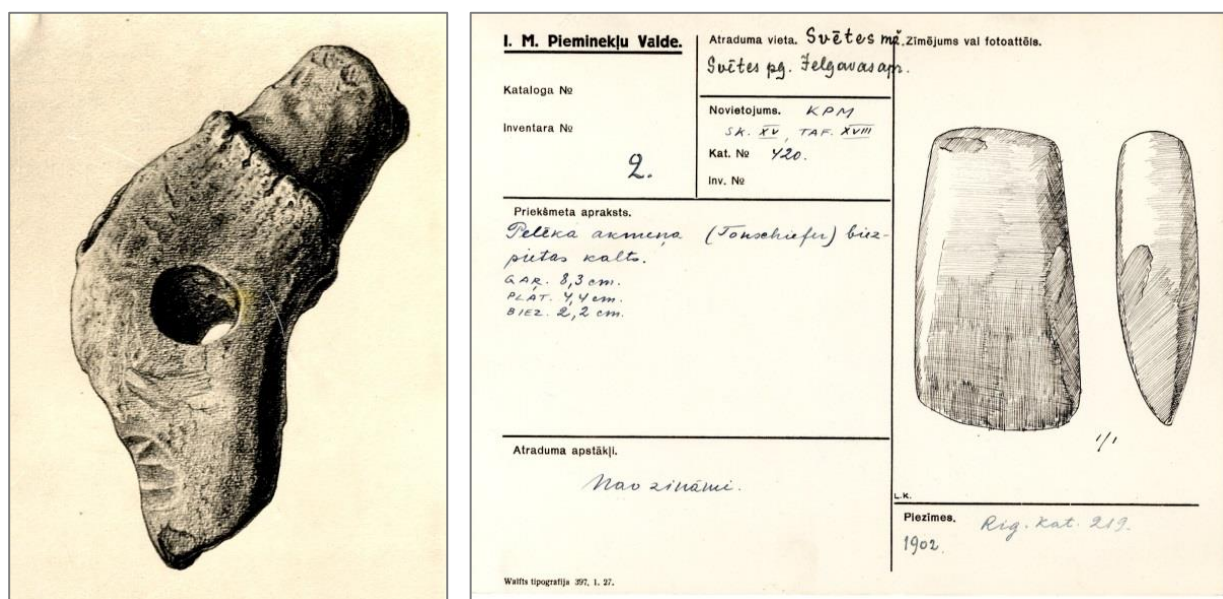 I. M. Pieminekļu Valde.
Kataloga №
Inventara №
2.
Atraduma vieta. Svētes mž.
Svētes pg. Jelgavas apr.
Novietojums. KPM
SK. XV, TAF. XVIII
Kat. № 420.
Inv. №
Zīmējums vai fotoattēls.
Priekšmeta apraksts.
Pelēka akmeņa (Tonschiefer) biez-
pietas kalts.
GAR. 8,3 cm.
PLAT. 4,4 cm.
BIEZ. 2,2 cm.
1/1
Atraduma apstākļi.
Nav zināmi.
L.K.
Piezīmes. Rig. Kat. 219.
1902.
Walfts tipografija 397. 1. 27.